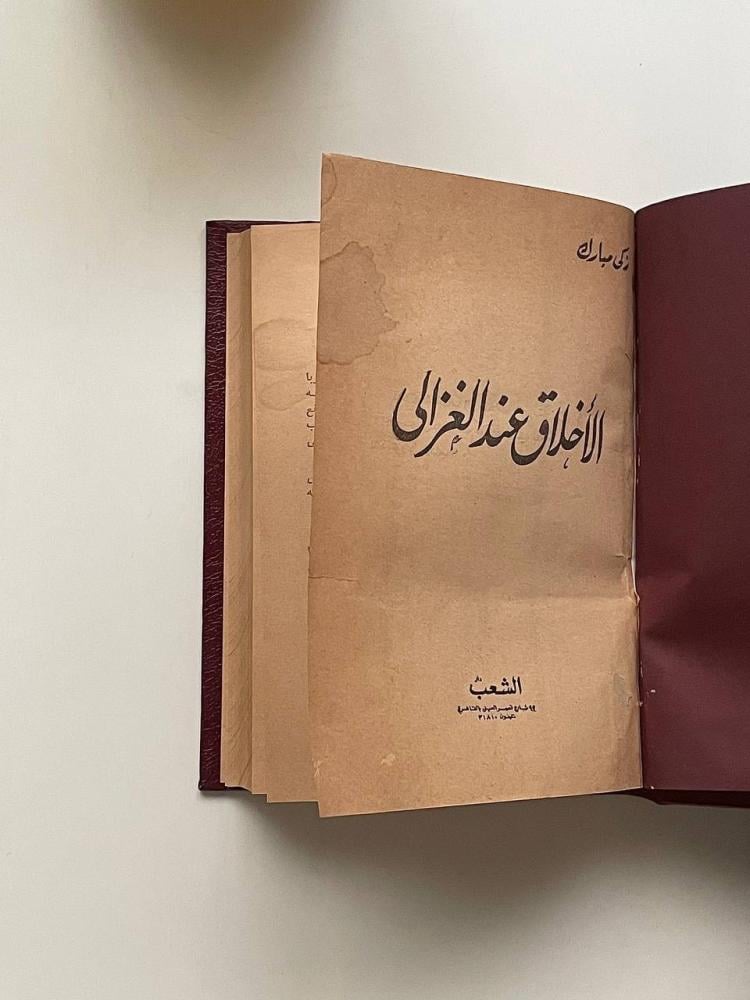 زكى مبارك
الأخلاق عند الغزالى
دار الشعب
٩٢ شارع قصر العينى بالقاهرة
تليفون ٣١٨١٠